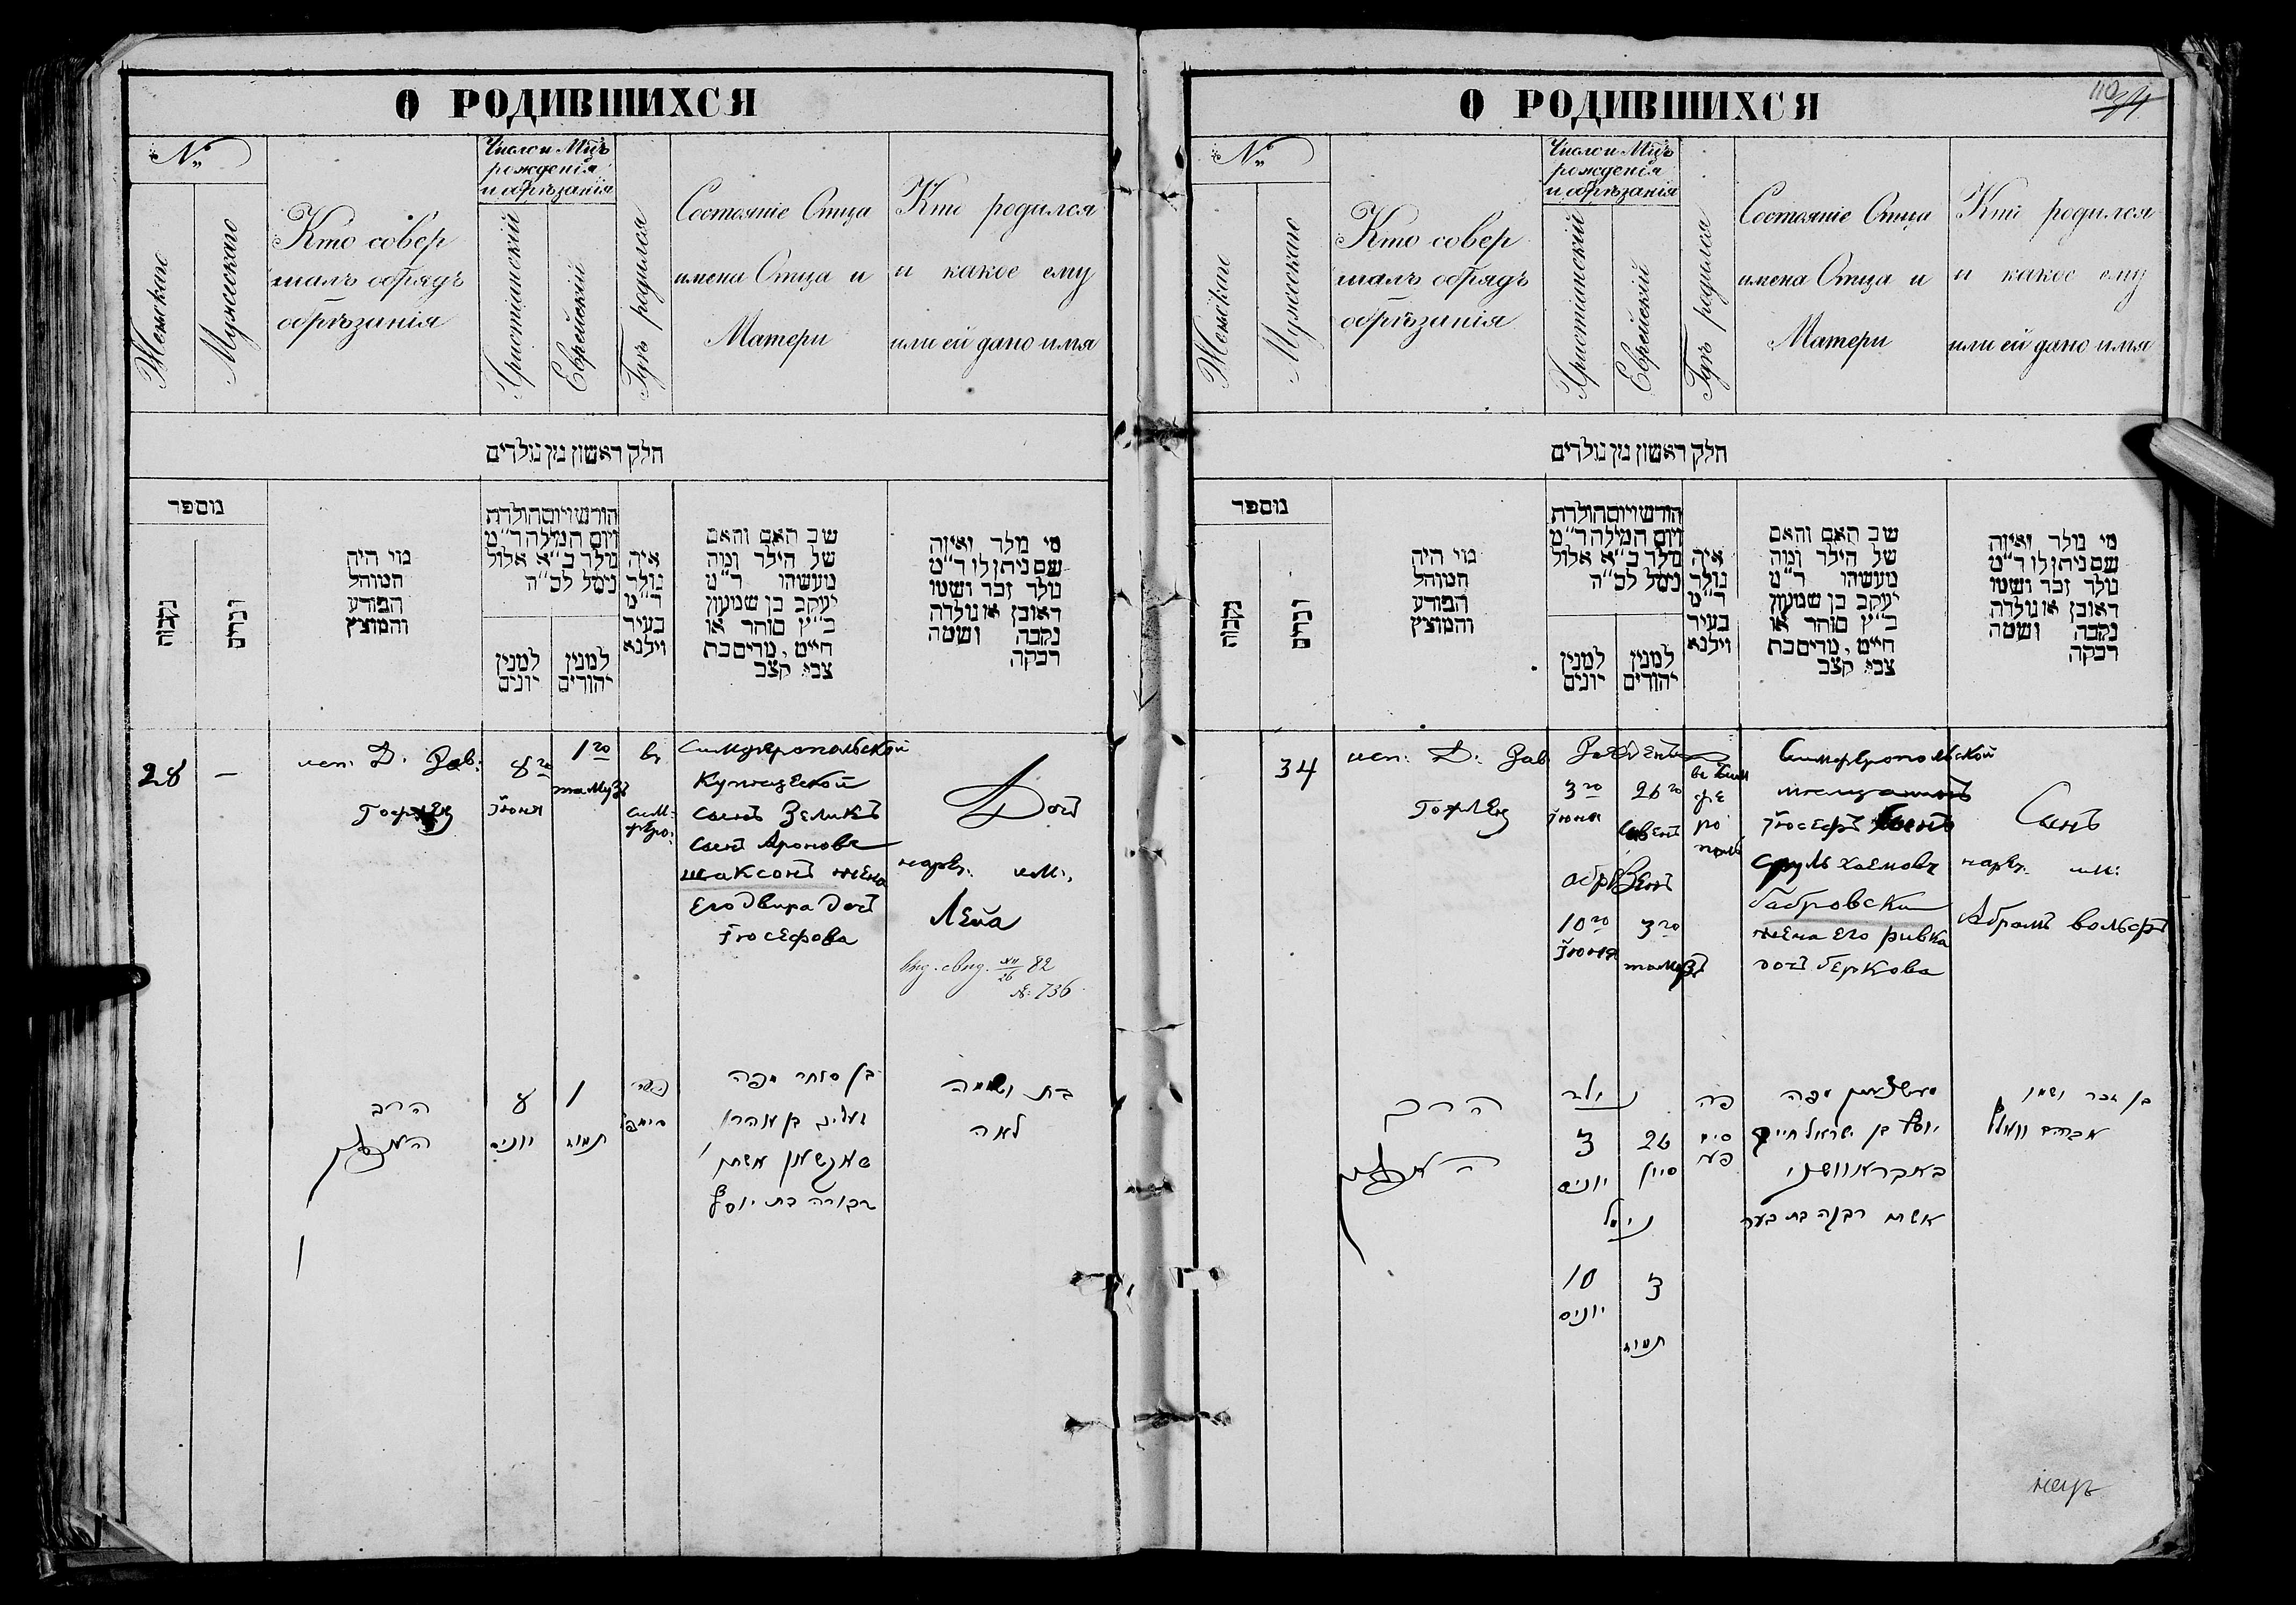 О РОДИВШИХСЯ
№
Женскаго
Мужескаго
Кто совер
шалъ обрядъ
обрѣзанія
Число и Мцъ
рожденія
и обрѣзанія
Христіанскій
Еврейскій
Гдѣ родился
Состояніе Отца
имена Отца и
Матери
Кто родился
и какое ему
или ей дано имя
חלק ראשון מן נולדים
מספר
נקבות
זכרים
מי היה
המוהל
הפורע
והמוצץ
חורש ויום הולדת
ויום המילה ר"מ
נולד כ"א אלול
נימל לכ"ה
למנין
יונים
למנין
יהודים
איה
נולד
ר"מ
בעיר
וילנא
שב האם והאם
של הילד ומה
מעשהו ר"מ
יעקב בן שמעון
כ"ץ סוחר או
חייט, מרים בת
צבי קצב
מי מלד ואיזה
שם ניתן לו ר"מ
נולד זכר ושמו
ראובן או נולדה
נקבה ושמה
רבקה
28
—
исп. Д. Зав:
8го
Іюня
1го
тамузъ
въ
сим:
феро:
Симферопольской
Купеческой
сынъ Зеликъ
сынъ Ароновъ
шаксонъ жена
Его Двира Дочъ
Іюсефова
Дочъ
нарѣ. им:
Лейа
Выд. свид. XII/26 82
№ 736
הרב
8
יוניס
1
תמוז
בן סוחר מפה
זעליג בן אהרן
אשתו
דבורה בת יוסף
בת ושמה
לאה
О РОДИВШИХСЯ
110
№
Женскаго
Мужескаго
Кто совер
шалъ обрядъ
обрѣзанія
Число и Мцъ
рожденія
и обрѣзанія
Христіанскій
Еврейскій
Гдѣ родился
Состояніе Отца
имена Отца и
Матери
Кто родился
и какое ему
или ей дано имя
חלק ראשון מן נולדים
מספר
נקבות
זכרים
מי היה
המוהל
הפורע
והמוצץ
חורש ויום הולדת
ויום המילה ר"מ
נולד כ"א אלול
נימל לכ"ה
למנין
יונים
למנין
יהודים
איה
נולד
ר"מ
בעיר
וילנא
שב האם והאם
של הילד ומה
מעשהו ר"מ
יעקב בן שמעון
כ"ץ סוחר או
חייט, מרים בת
צבי קצב
מי נולד ואיזה
שם ניתן לו ר"מ
נולד זכר ושמו
ראובן או נולדה
נקבה ושמה
רבקה
34
исп: Д. Зав
3го
Іюня
26го
обрѣзенъ
10го
Іюня
3го
тамузъ
въ Сим
фе
ро
поль
Симферопольской
мещанинъ
Іюсефъ сынъ
Сруль хаемовъ
Бабровски
жена его ривка
дочъ Беркова
Сынъ
нарѣ. им:
Абрамъ вольфъ
הרב
נולד
3
יוניס
26
סיון
נימל
10
יוניס
3
תמוז
פה
סימ
פער
מפה
יוסף בן ישראל חיים
באבראווסקי
אשתו רבקה בת בער
בן זכר ושמו
אברהם וואלף